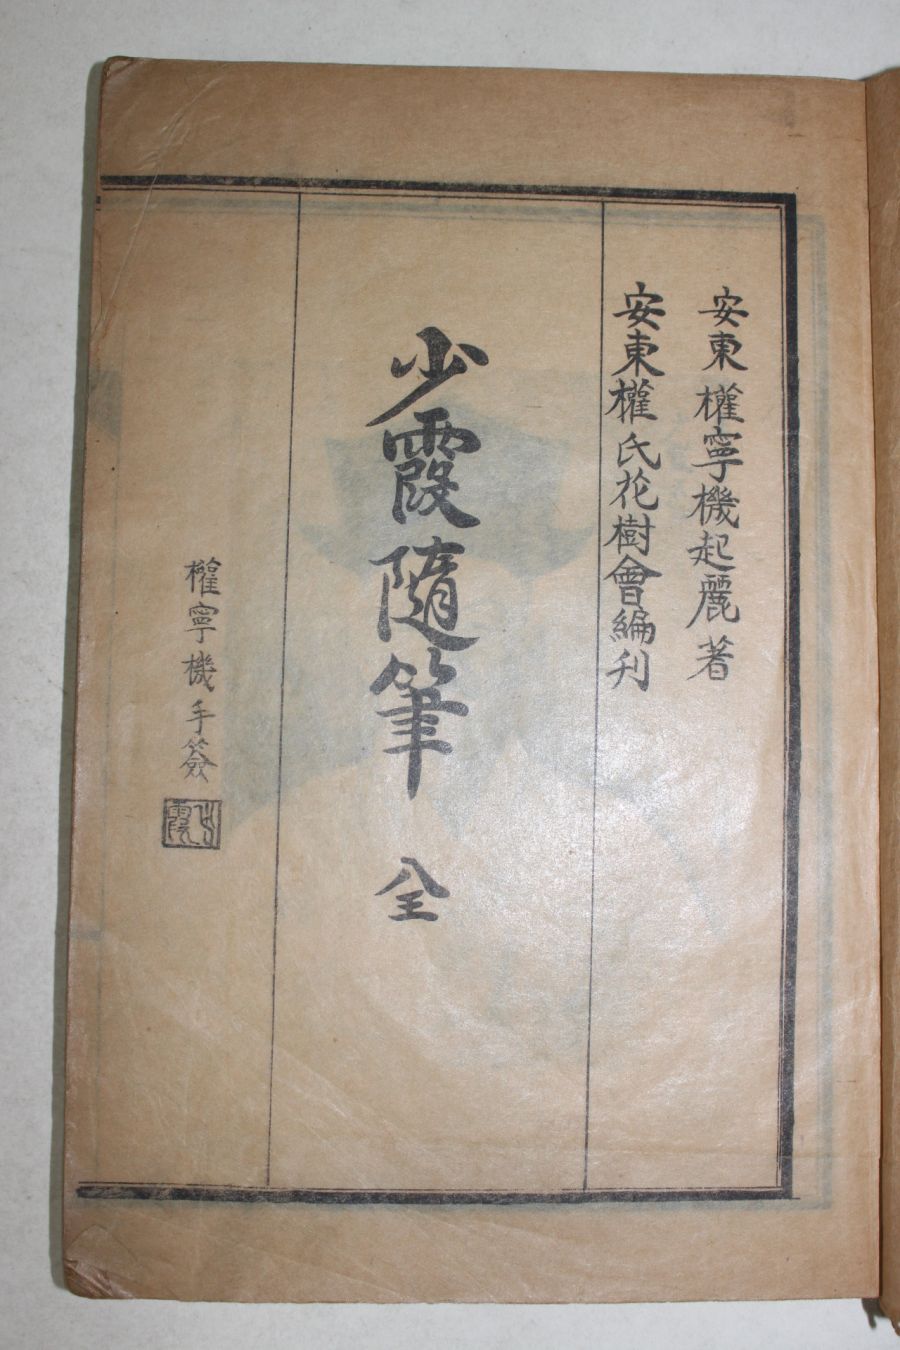 安東權寧機起麗著
安東權氏花樹會編刋
少霞隨筆 全
權寧機手簽
少霞